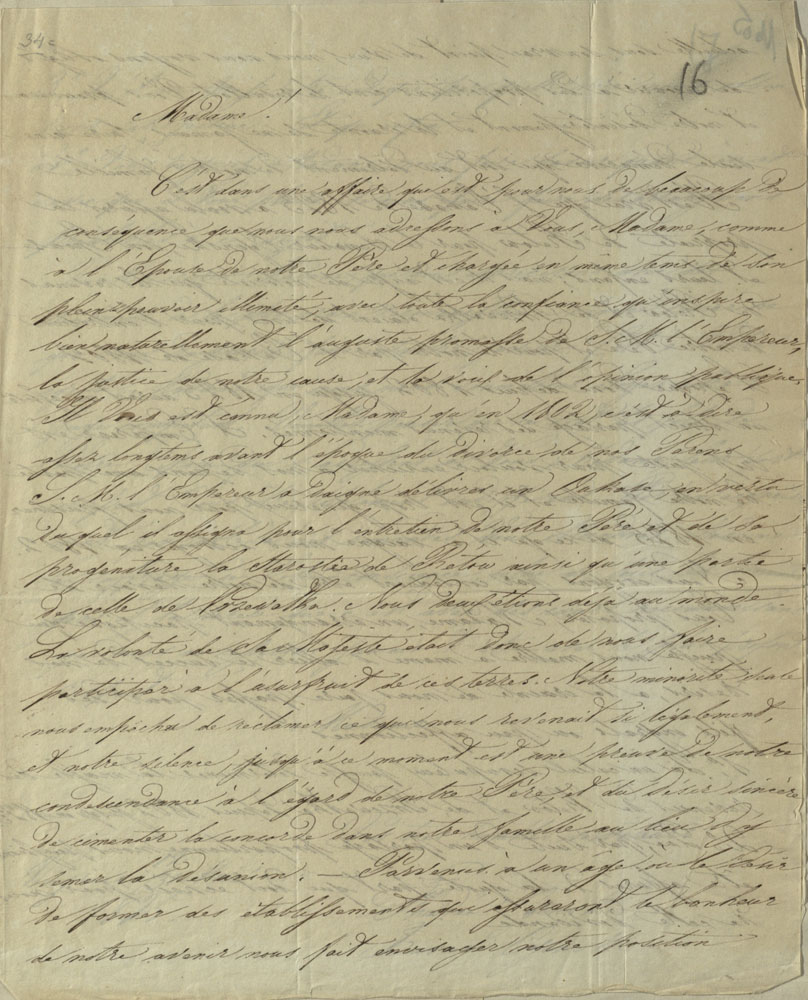 34c
16
Madame!
C'est dans une affaire qui est pour nous de beaucoup de
conséquence que nous nous adressons à Vous, Madame, comme
à l'Epouse de notre Père et chargée en même tems de son
plein pouvoir illimité, avec toute la confiance qu'inspire
bien naturellement l'auguste promesse de S. M. l'Empereur,
la justice de notre cause, et la voix de l'opinion publique.
Il Vous est connu, Madame, qu'en 1802 c'est à dire
assez longtems avant l'époque du divorce de nos Parens
S. M. l'Empereur a daigné délivrer un Oukase, en vertu
du quel il assigna pour l'entretien de notre Père et de sa
progéniture la Starostie de Ratow ainsi qu'une partie
de celle de Nous deux étions déjà au monde.
La volonté de Sa Majesté était donc de nous faire
participer à l'usufruit de ces terres. Notre minorité seule
nous empêcha de réclamer ce qui nous revenait si légalement,
et notre silence, jusqu'à ce moment est une preuve de notre
condescendance à l'égard de notre Père, et du désir sincère
de cimenter la concorde dans notre famille au lieu d'y
semer la désunion. — Parvenus à un age où le désir
de former des établissements qui assureront le bonheur
de notre avenir nous fait envisager notre position